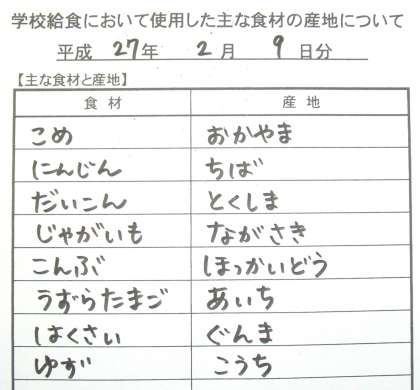 学校給食において使用した主な食材の産地について
平成 27年 2月 9日分
【主な食材と産地】
食材 産地
こめ おかやま
にんじん ちば
だいこん とくしま
じゃがいも ながさき
こんぶ ほっかいどう
うずらたまご あいち
はくさい ぐんま
ゆず こうち